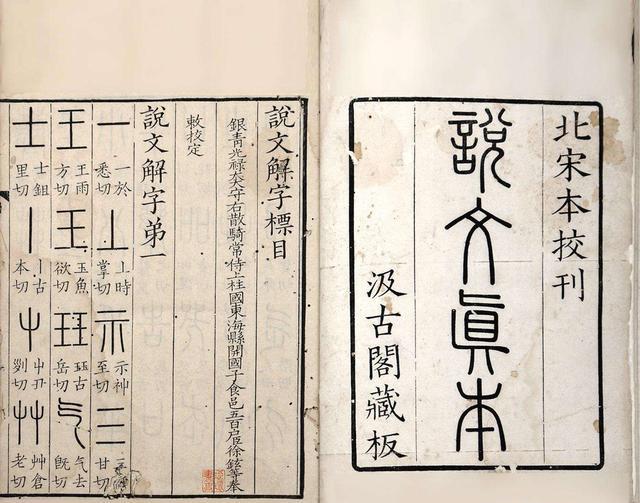 北宋本挍刊
說文眞本
汲古閣藏板
說文解字標目
銀青光祿大夫守右散騎常侍上柱國東海縣開國子食邑五百戶臣徐鉉等奉
敕校定
說文解字弟一
一 一於悉切 丄 上時掌切 示 示神至切 三 甘切
王 王雨方切 玉 玉魚欲切 玨 玨古岳切 气 气去旣切
士 士鉏里切 丨 丨古本切 屮 屮丑列切 艸 艸倉老切